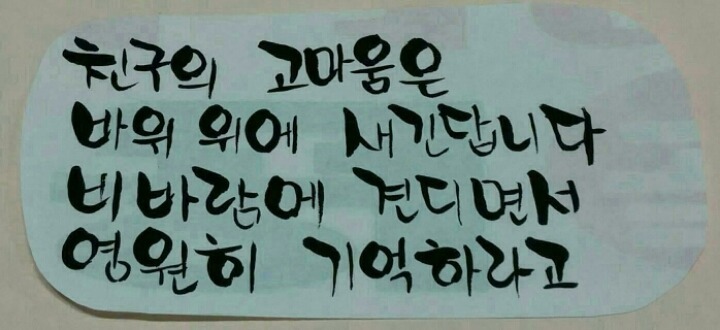 친구의 고마움은
바위 위에 새긴답니다
비바람에 견디면서
영원히 기억하라고